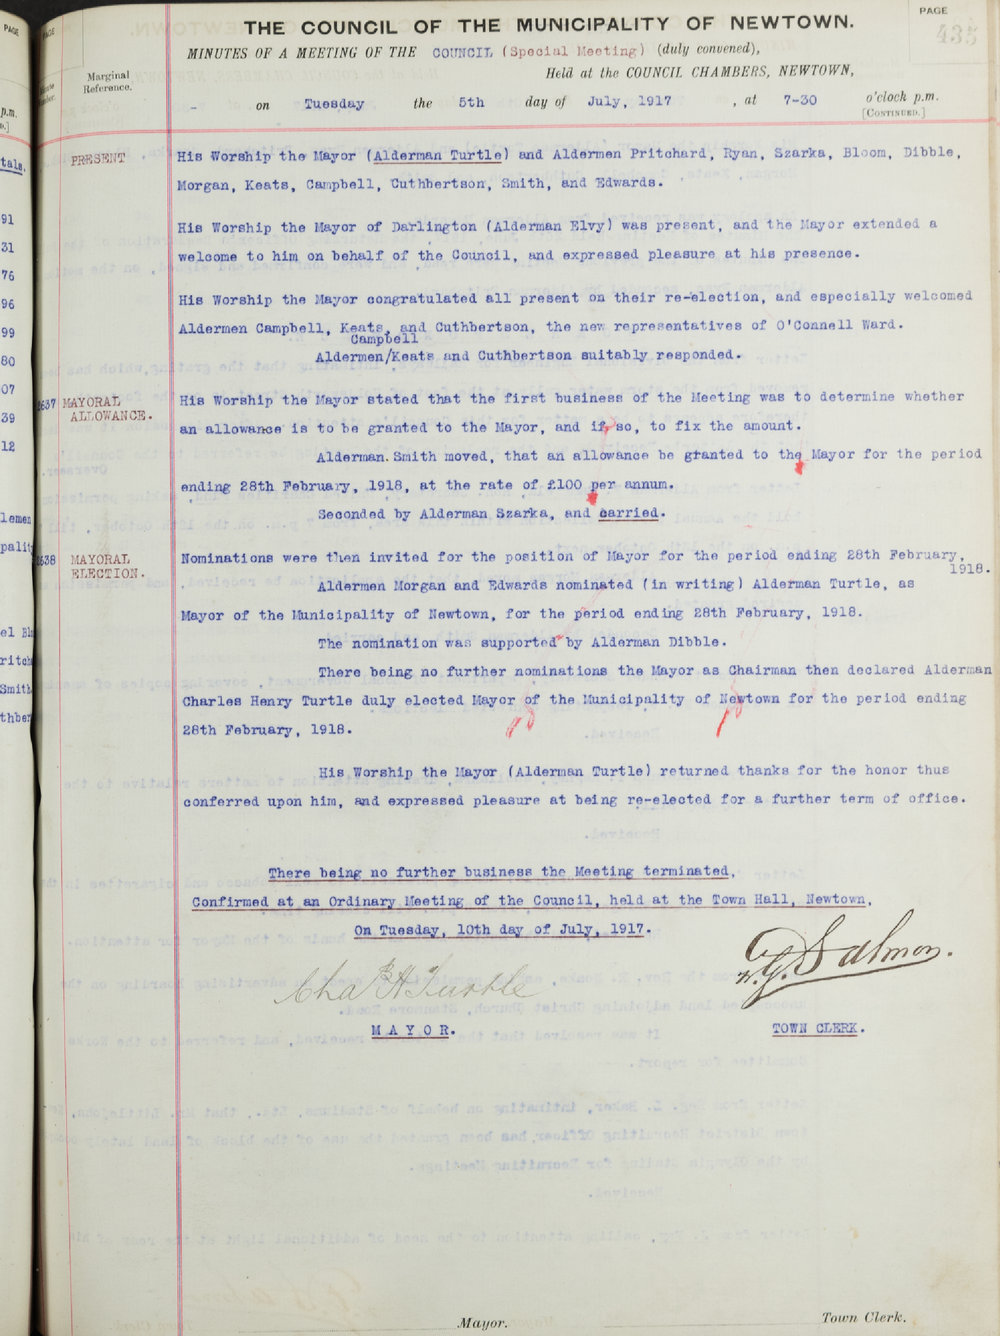 PAGE
435
THE COUNCIL OF THE MUNICIPALITY OF NEWTOWN.
MINUTES OF A MEETING OF THE COUNCIL (Special Meeting) (duly convened),
Held at the COUNCIL CHAMBERS, NEWTOWN,
Marginal
Reference.
- on Tuesday the 5th day of July, 1917, at 7-30 o'clock p.m.
[CONTINUED.]
PRESENT
His Worship the Mayor (Alderman Turtle) and Aldermen Pritchard, Ryan, Szarka, Bloom, Dibble,
Morgan, Keats, Campbell, Cuthbertson, Smith, and Edwards.
His Worship the Mayor of Darlington (Alderman Elvy) was present, and the Mayor extended a
welcome to him on behalf of the Council, and expressed pleasure at his presence.
His Worship the Mayor congratulated all present on their re-election, and especially welcomed
Aldermen Campbell, Keats, and Cuthbertson, the new representatives of O'Connell Ward.
Campbell
Aldermen/Keats and Cuthbertson suitably responded.
2637 MAYORAL
ALLOWANCE.
His Worship the Mayor stated that the first business of the Meeting was to determine whether
an allowance is to be granted to the Mayor, and if so, to fix the amount.
Alderman Smith moved, that an allowance be granted to the Mayor for the period
ending 28th February, 1918, at the rate of £100 per annum.
Seconded by Alderman Szarka, and carried.
2638 MAYORAL
ELECTION.
Nominations were then invited for the position of Mayor for the period ending 28th February,
1918.
Aldermen Morgan and Edwards nominated (in writing) Alderman Turtle, as
Mayor of the Municipality of Newtown, for the period ending 28th February, 1918.
The nomination was supported by Alderman Dibble.
There being no further nominations the Mayor as Chairman then declared Alderman
Charles Henry Turtle duly elected Mayor of the Municipality of Newtown for the period ending
28th February, 1918.
His Worship the Mayor (Alderman Turtle) returned thanks for the honor thus
conferred upon him, and expressed pleasure at being re-elected for a further term of office.
There being no further business the Meeting terminated,
Confirmed at an Ordinary Meeting of the Council, held at the Town Hall, Newtown,
On Tuesday, 10th day of July, 1917.
Chas H Turtle
Salmon.
MAYOR.
TOWN CLERK.
Mayor.
Town Clerk.